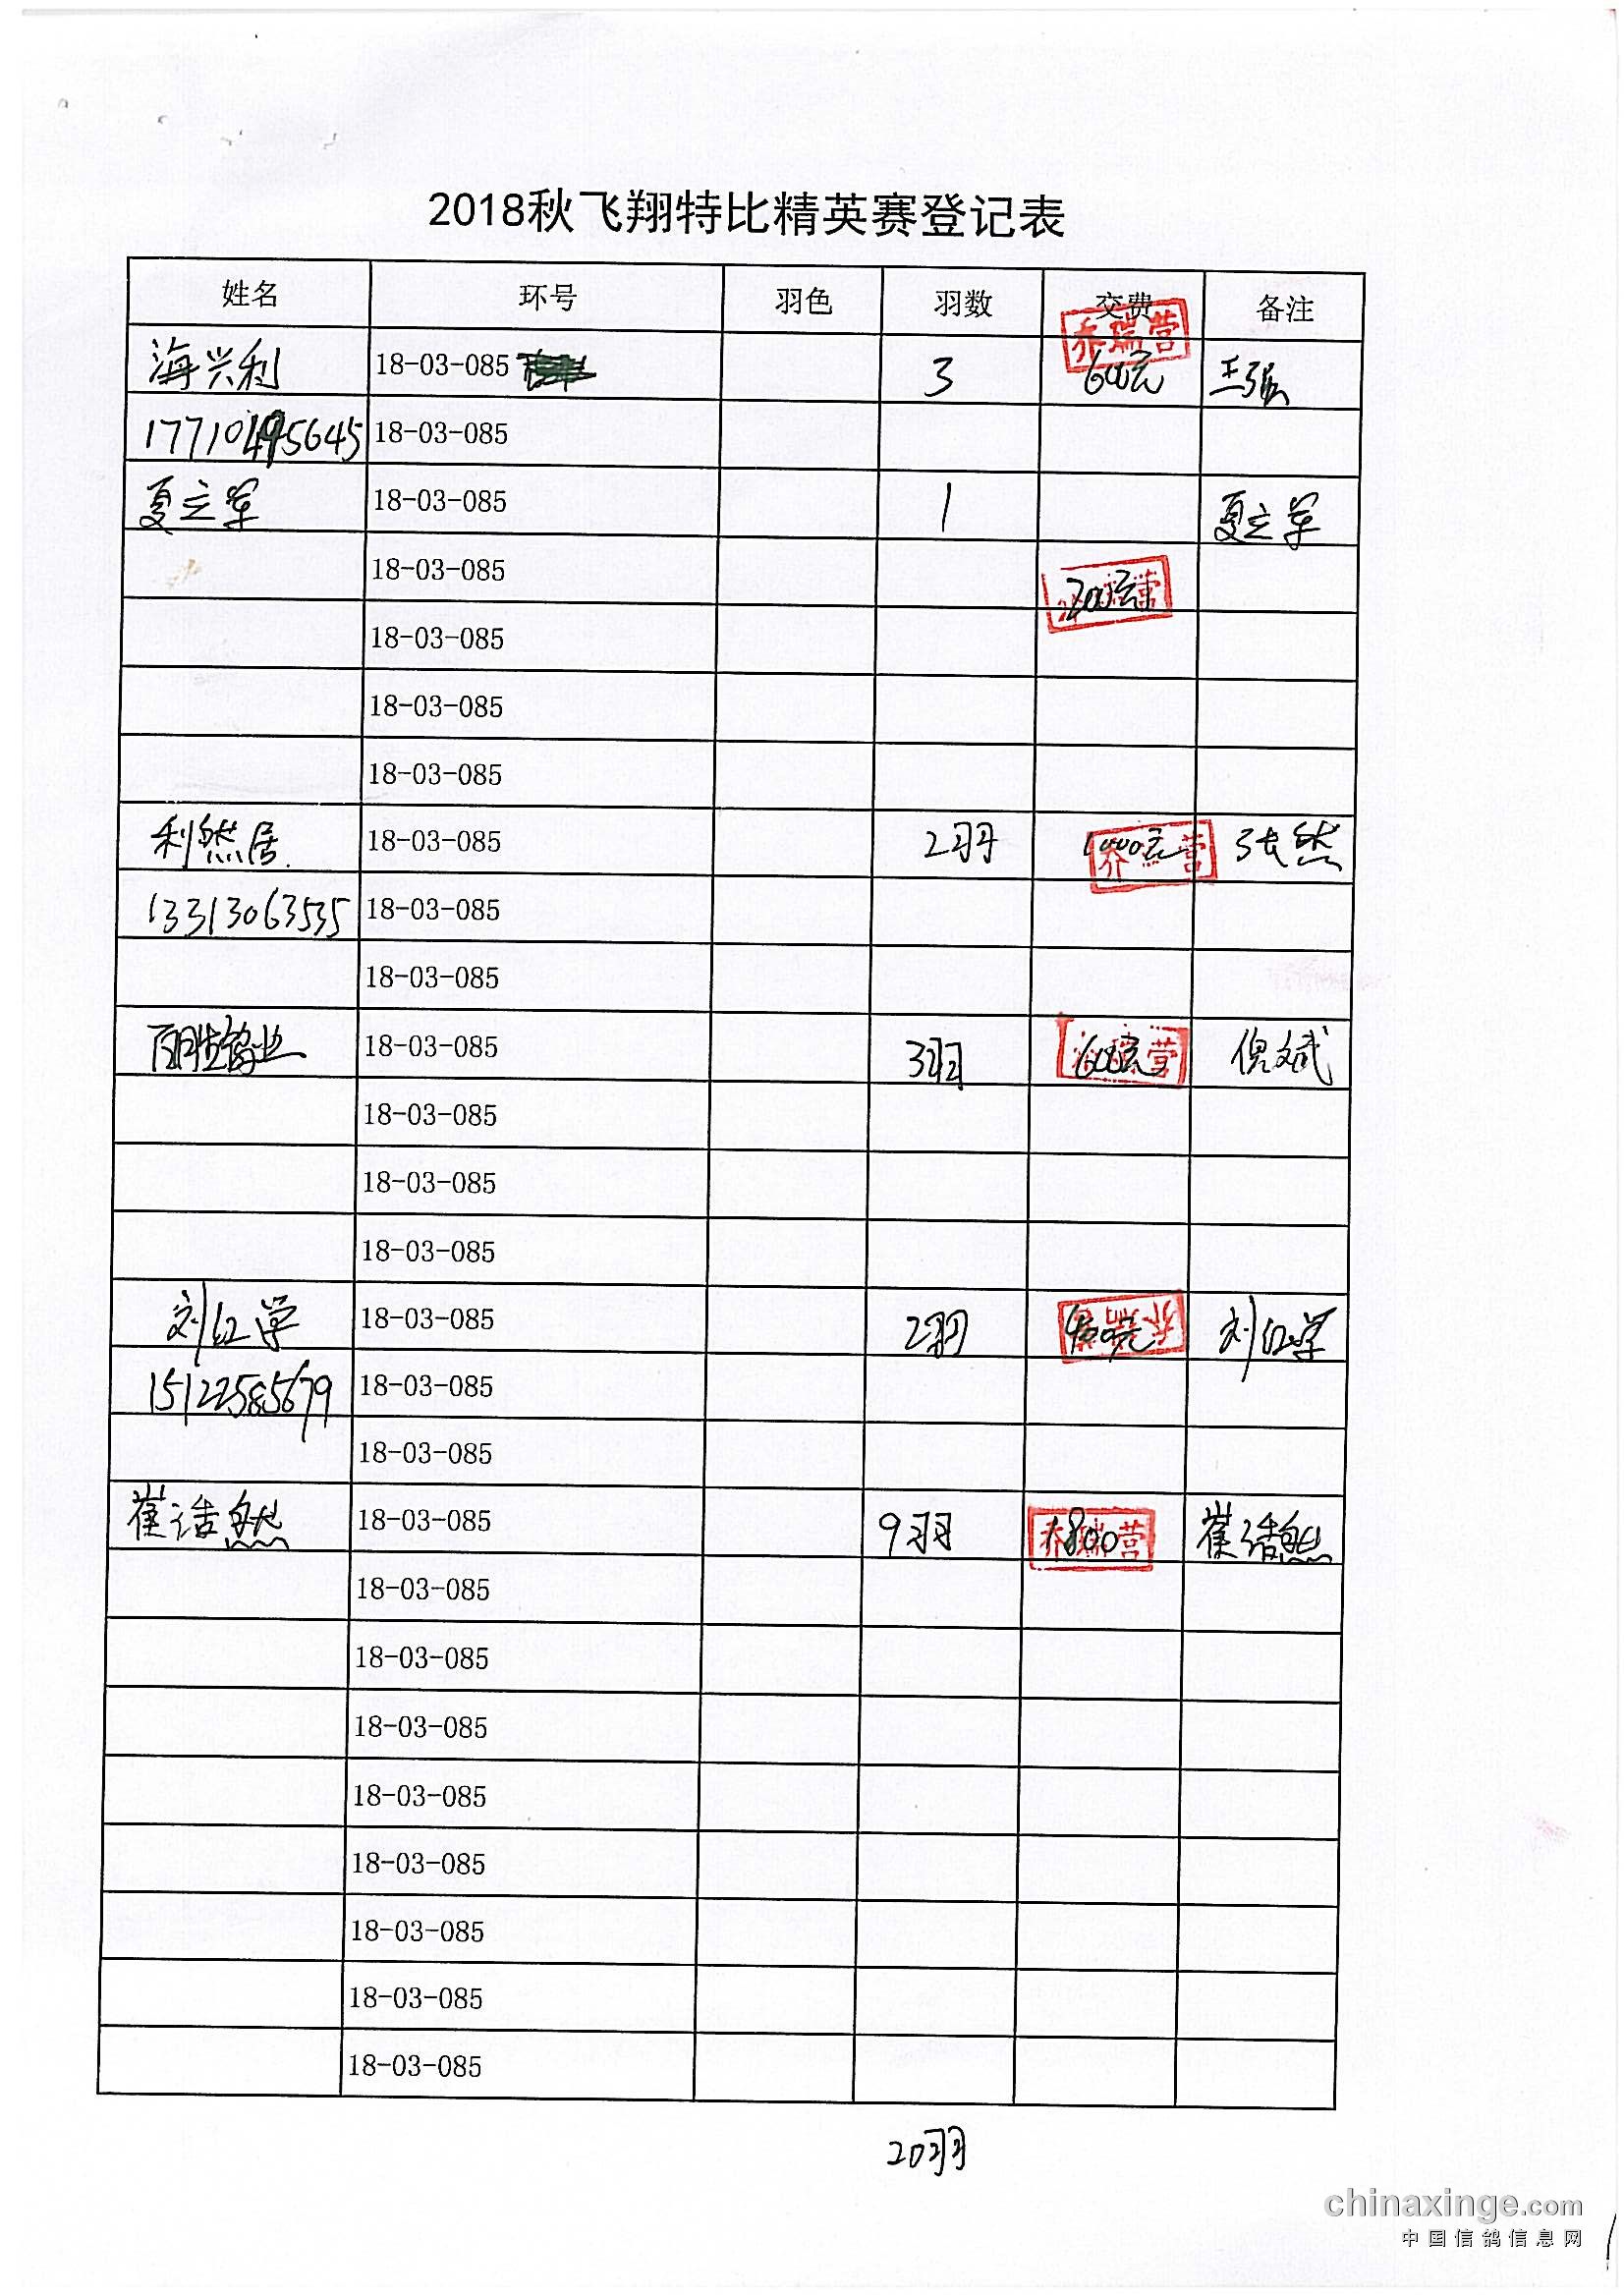 2018秋飞翔特比精英赛登记表
姓名 环号 羽色 羽数 交费 备注
乔瑞营
海兴利 18-03-085 3 600元 王强
17710495645 18-03-085
夏立军 18-03-085 1 夏立军
18-03-085 200元
18-03-085
18-03-085
18-03-085
利然居 18-03-085 2羽 张然
13313063535 18-03-085
18-03-085
百胜鸽业 18-03-085 3羽 600元 倪斌
18-03-085
18-03-085
18-03-085
刘红学 18-03-085 2羽 400元 刘红学
15122585679 18-03-085
18-03-085
崔浩然 18-03-085 9羽 1800 崔浩然
18-03-085
18-03-085
18-03-085
18-03-085
18-03-085
18-03-085
18-03-085
18-03-085
20羽
chinaxinge.com
中国信鸽信息网